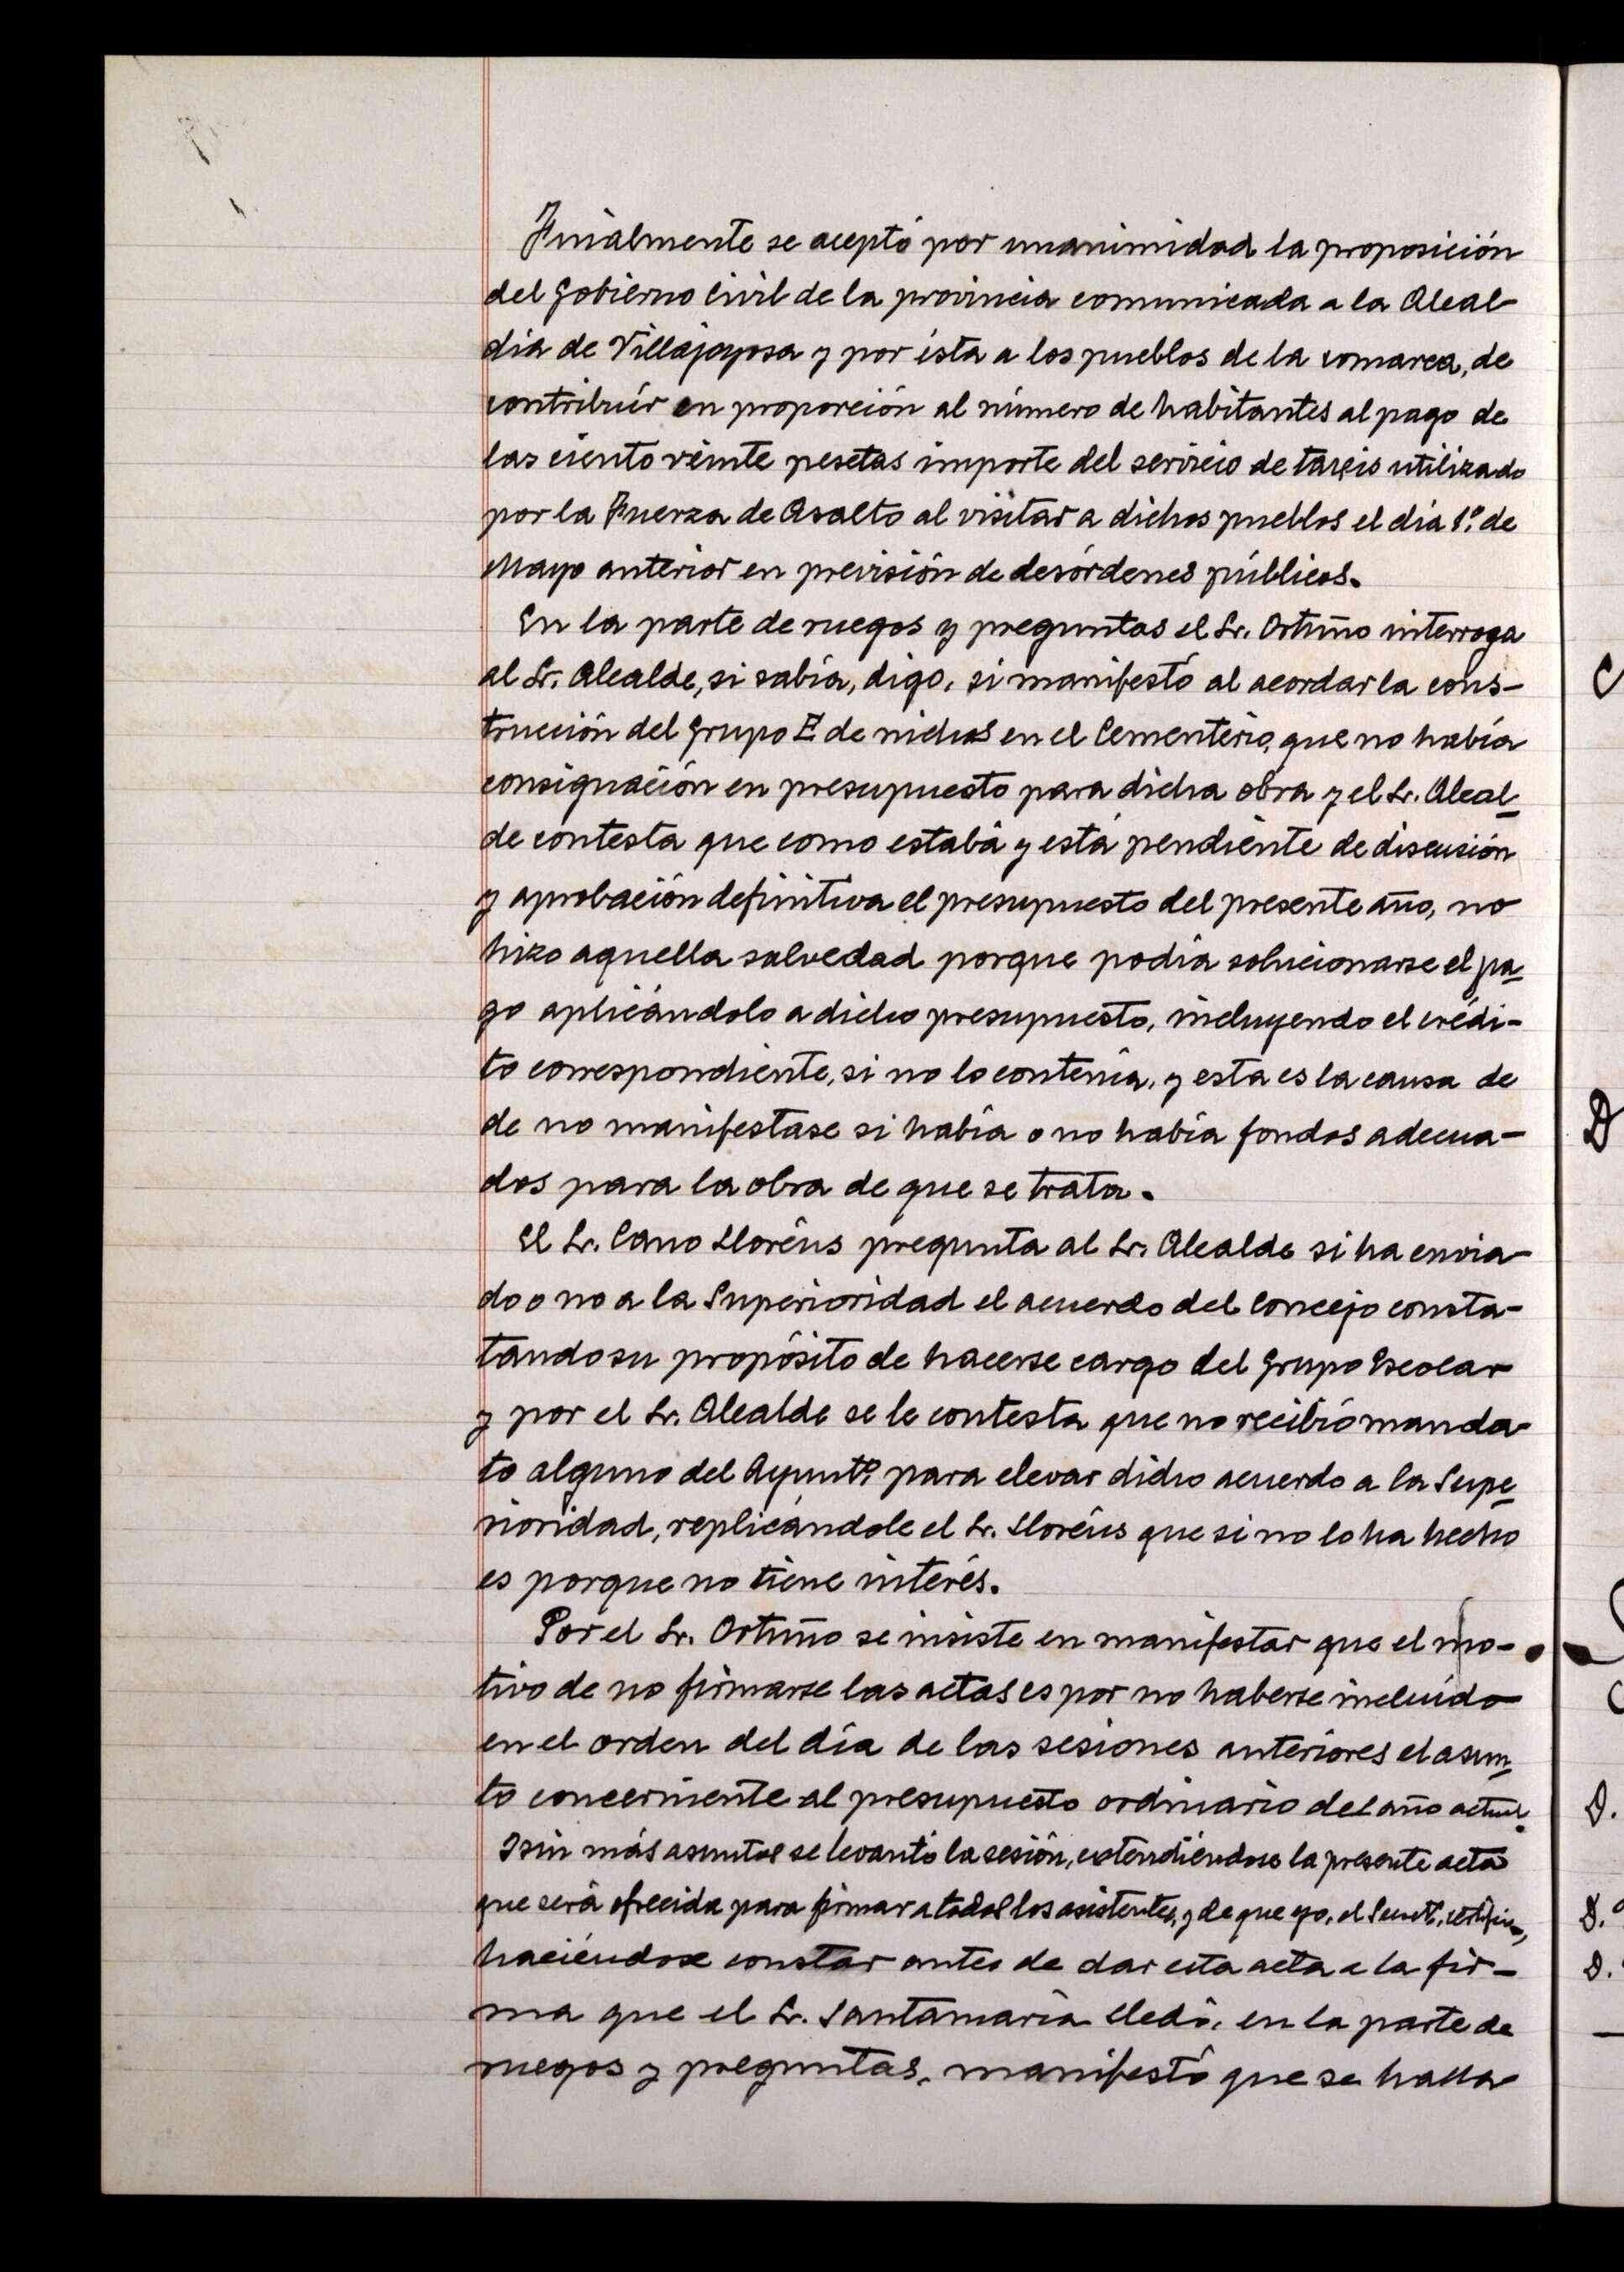 Finalmente se aceptó por unanimidad la proposición
del Gobierno Civil de la provincia comunicada a la Alcal-
día de Villajoyosa y por ésta a los pueblos de la comarca, de
contribuír en proporción al número de habitantes al pago de
las ciento veinte pesetas importe del servicio de taxis utilizado
por la Fuerza de Asalto al visitar a dichos pueblos el día 1º. de
Mayo anterior en previsión de desórdenes públicos.
En la parte de ruegos y preguntas el Sr. Ortuño interroga
al Sr. Alcalde, si sabía, digo, si manifestó al acordar la cons-
trucción del Grupo E de nichos en el Cementerio, que no había
consignación en presupuesto para dicha obra y el Sr. Alcal-
de contesta que como estaba y está pendiente de discusión
y aprobación definitiva el presupuesto del presente año, no
hizo aquella salvedad porque podía solucionarse el pa-
go aplicándolo a dicho presupuesto, incluyendo el crédi-
to correspondiente, si no lo contenía, y esta es la causa de
de no manifestase si había o no había fondos adecua-
dos para la obra de que se trata.
El Sr. Cano Lloréns pregunta al Sr. Alcalde si ha envia-
do o no a la Superioridad el acuerdo del Concejo consta-
tando su propósito de hacerse cargo del Grupo Escolar
y por el Sr. Alcalde se le contesta que no recibió manda-
to alguno del Ayuntº. para elevar dicho acuerdo a la Supe-
rioridad, replicándole el Sr. Lloréns que si no lo ha hecho
es porque no tiene interés.
Por el Sr. Ortuño se insiste en manifestar que el mo-
tivo de no firmarse las actas es por no haberse incluído
en el orden del día de las sesiones anteriores el asun-
to concerniente al presupuesto ordinario del año actual.
Y sin más asuntos se levantó la sesión, extendiéndose la presente acta
que será ofrecida para firmar a todos los asistentes, y de que yo, el Secretº, certifico,
haciéndose constar antes de dar esta acta a la fir-
ma que el Sr. Santamaría Lledó, en la parte de
ruegos y preguntas, manifestó que se halla